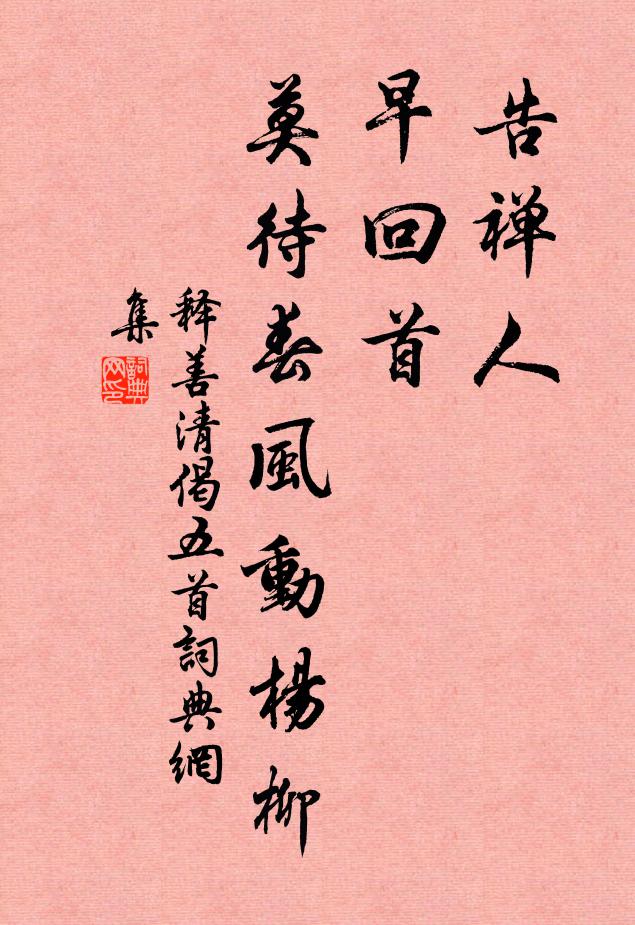 告禅人
早回首
莫待春風動楊柳
释善清偈五首詞典網
集
詞典
网印